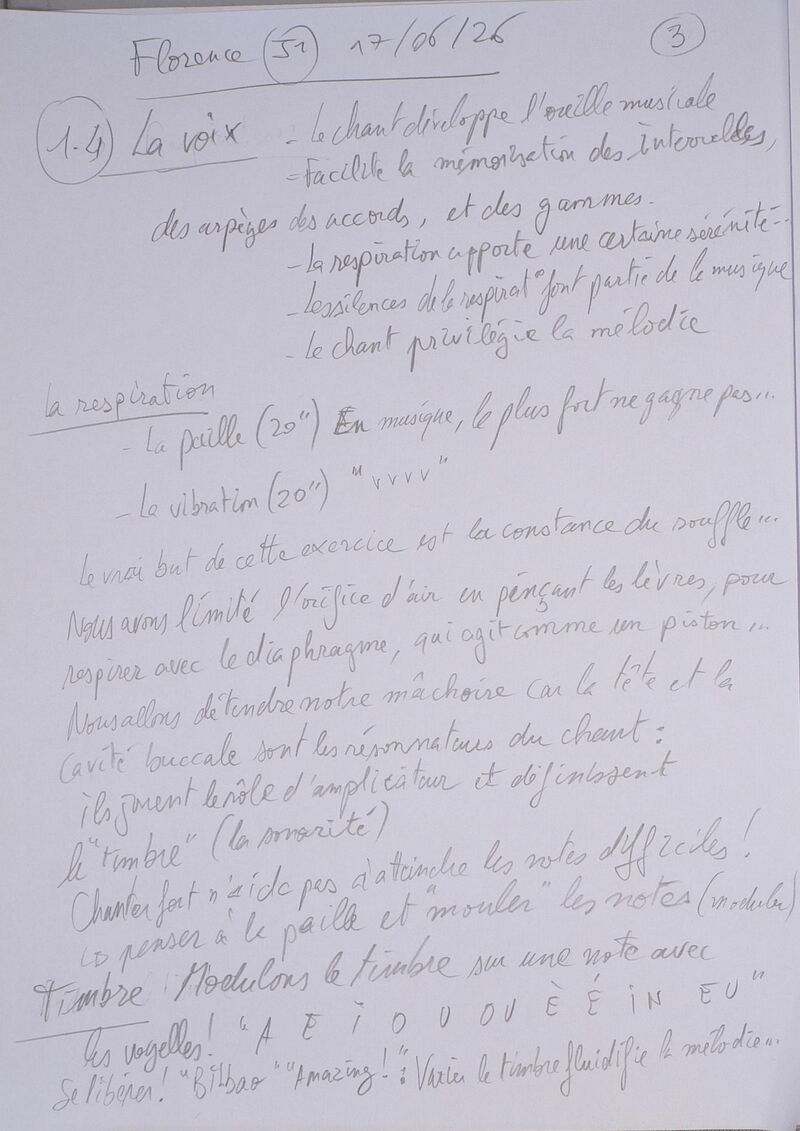 Florence S1 17/06/26 3
1.4 La voix - Le chant développe l'oreille musicale
- Facilite la mémorisation des intervalles,
des arpèges des accords, et des gammes.
- La respiration apporte une certaine sérénité...
- Les silences de la respirat° font partie de la musique
- Le chant privilégie la mélodie
la respiration
- La paille (20") En musique, le plus fort ne gagne pas...
- Le vibration (20") "vvvv"
Le vrai but de cette exercice est la constance du souffle...
Nous avons limité l'orifice d'air en pençant les lèvres, pour
respirer avec le diaphragme, qui agit comme un piston...
Nous allons détendre notre mâchoire car la tête et la
cavité buccale sont les résonnateurs du chant :
ils jouent le rôle d'amplicateur et définissent
le "timbre" (la sonorité)
Chanter fort n'aide pas à atteindre les notes difficiles !
penser à la paille et "mouler" les notes (moduler)
Timbre Modulons le timbre sur une note avec
les voyelles ! "A E I O U OU È É IN EU"
Se libérer ! "Bilbao" "Amazing !" : Varier le timbre fluidifie la mélodie...